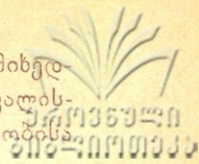 მიხედ-
ვალის-
ობისა
ეროვნული
ბიბლიოთეკა